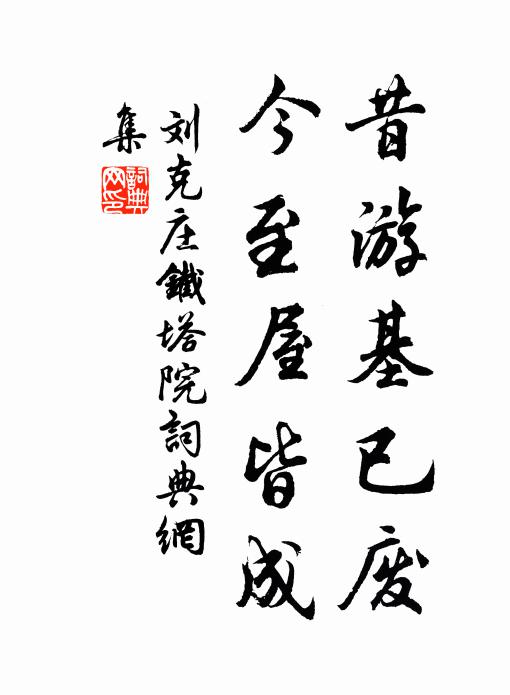 昔游基已废
今至屋皆成
刘克庄鐵塔院詞典網
集
詞典
网印